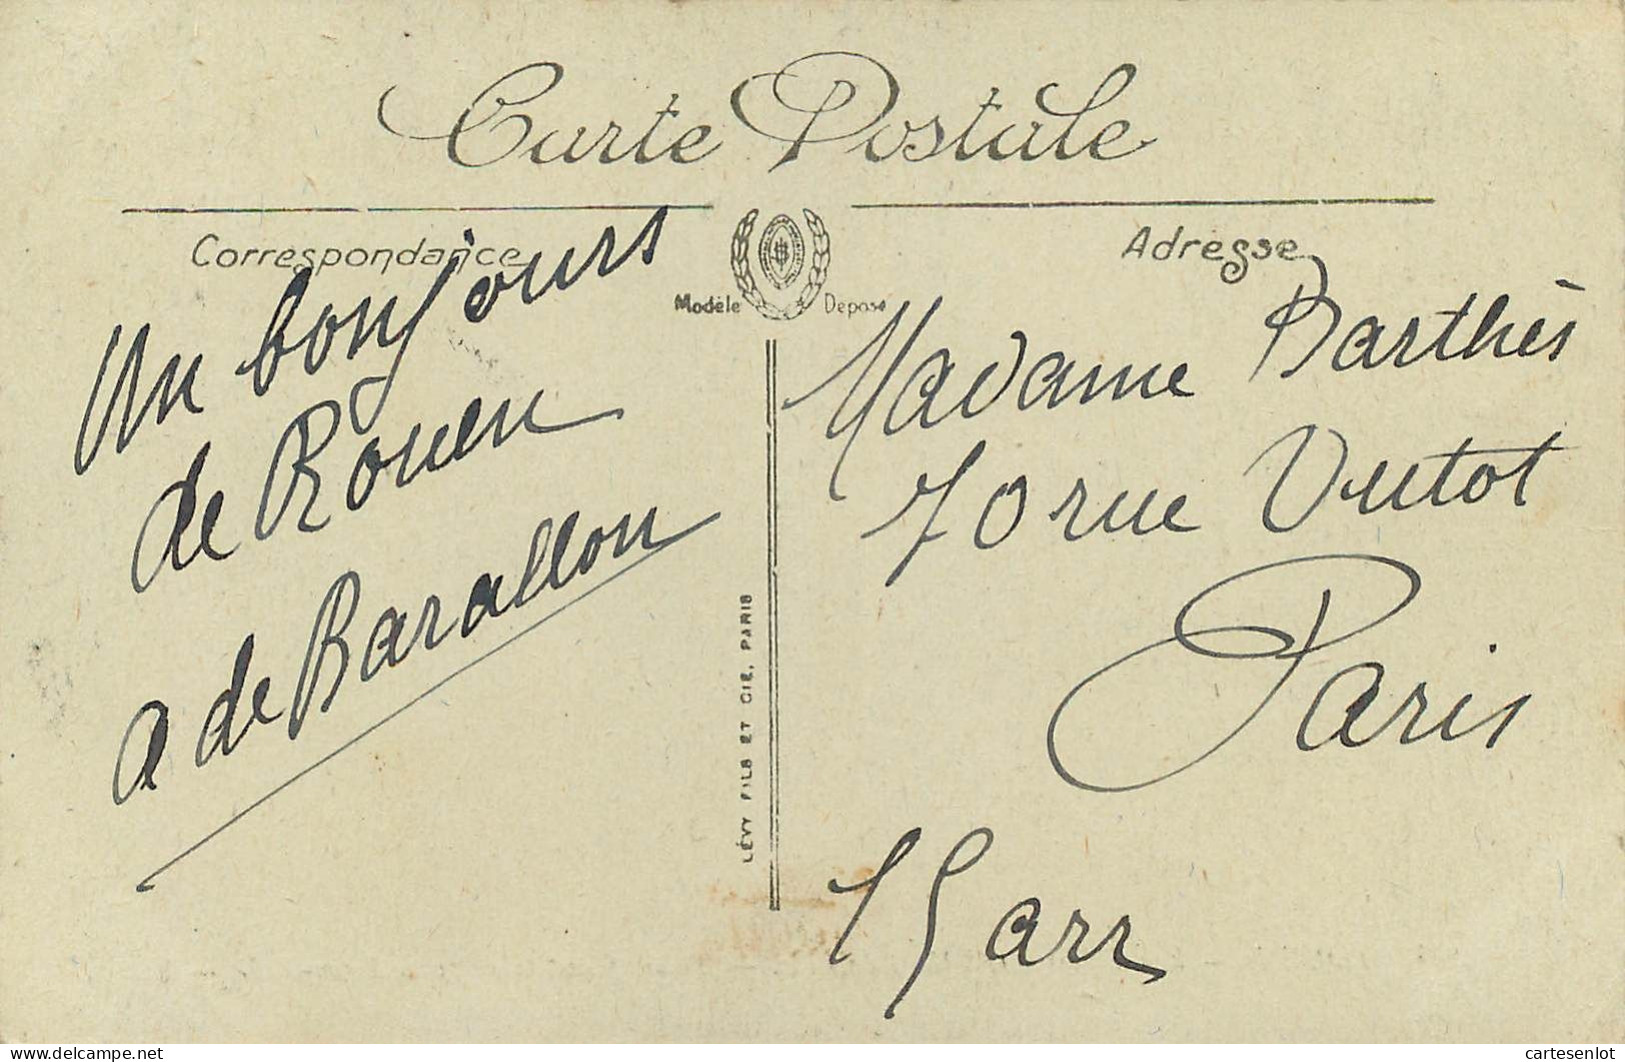 Carte Postale
Correspondance
Modèle Déposé
Adresse
Un bonjours
de Rouen
A de Barallon
LÉVY FILS ET CIE, PARIS
Madame Barthès
70 rue Dutot
Paris
15 arr
cartesenlot